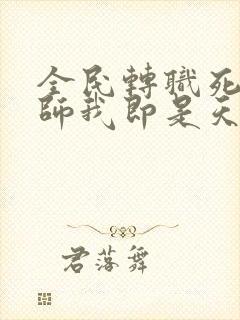 全民轉職死
師我即是天
君落舞